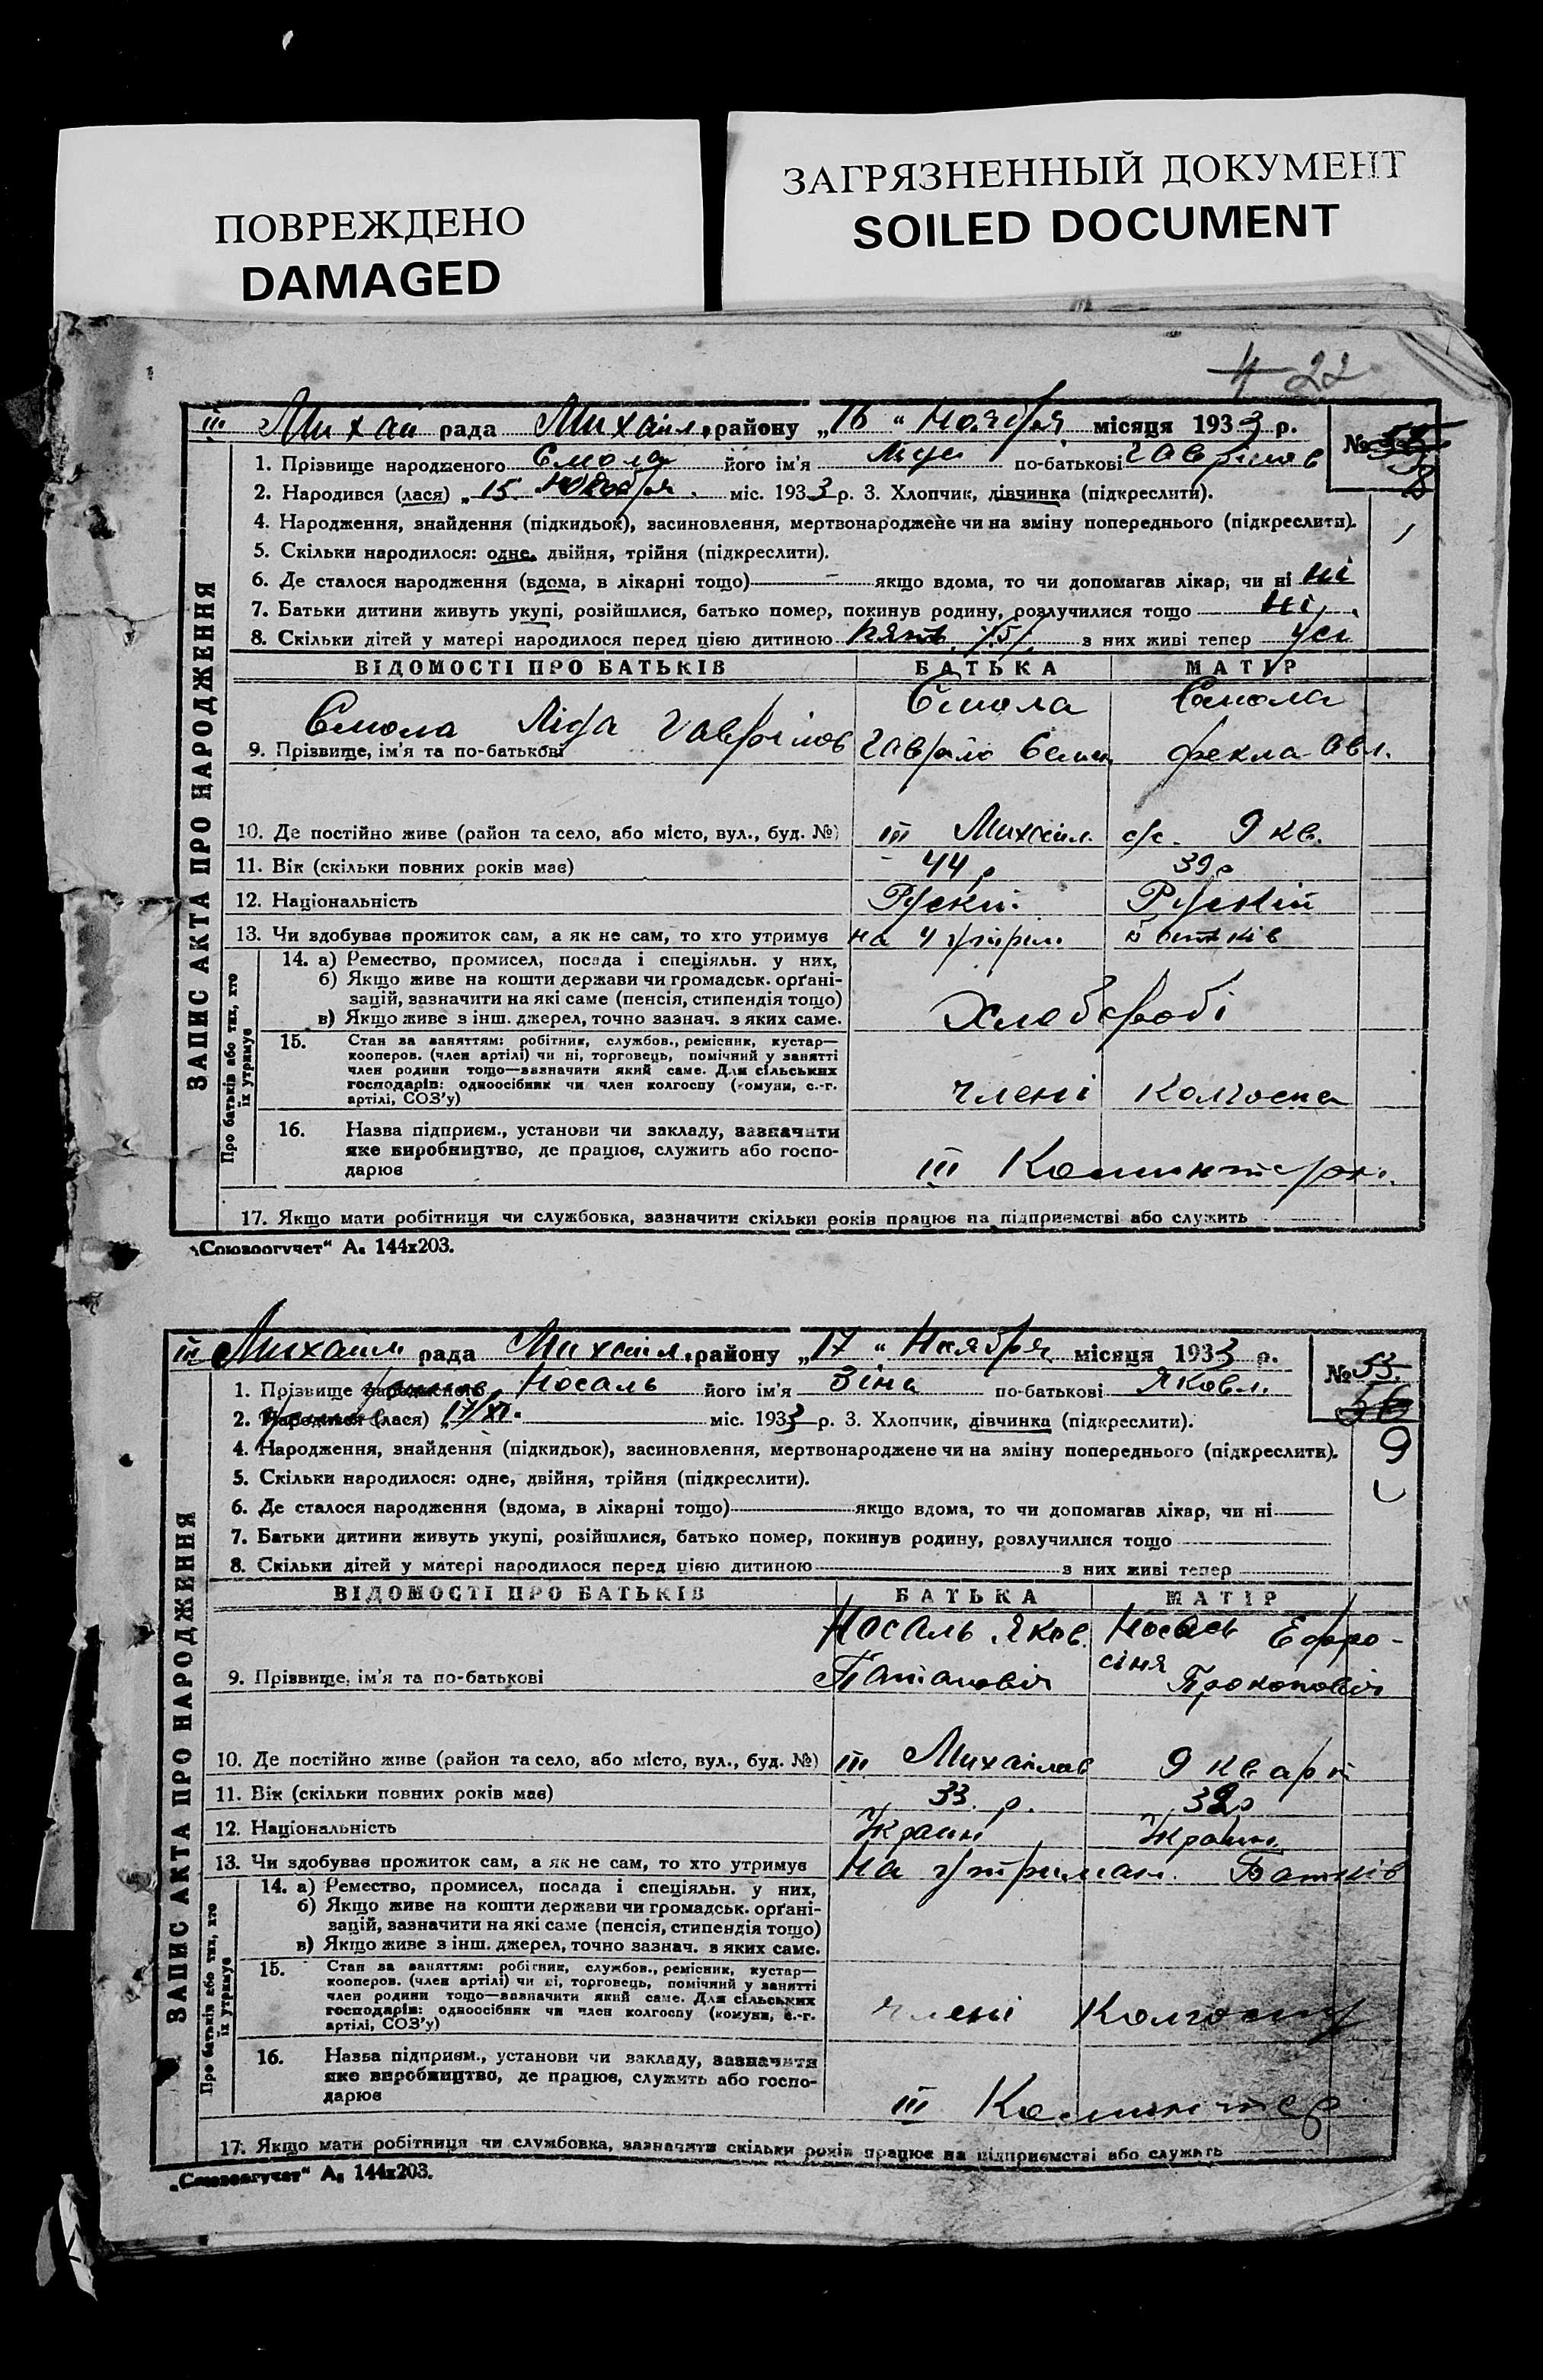 ПОВРЕЖДЕНО
DAMAGED
ЗАГРЯЗНЕННЫЙ ДОКУМЕНТ
SOILED DOCUMENT
22
ЗАПИС АКТА ПРО НАРОДЖЕННЯ
III Михай рада Михаил. району „16" Ноября місяця 1933 р.
№ 55
8
1. Прізвище народженого Смола його ім'я по-батькові Гаврилов
2. Народився (лася) „15 Ноября міс. 1933 р. 3. Хлопчик, дівчинка (підкреслити).
4. Народження, знайдення (підкидьок), засиновлення, мертвонароджене чи на зміну попереднього (підкреслити).
5. Скільки народилося: одне, двійня, трійня (підкреслити).
6. Де сталося народження (вдома, в лікарні тощо) якщо вдома, то чи допомагав лікар, чи ні ні
7. Батьки дитини живуть укупі, розійшлися, батько помер, покинув родину, розлучилися тощо ні
8. Скільки дітей у матері народилося перед цією дитиною пять /5/ з них живі тепер усі
ВІДОМОСТІ ПРО БАТЬКІВ БАТЬКА МАТІР
Смола Ліда Гаврілов Смола Смола
9. Прізвище, ім'я та по-батькові Гаврило Семен Фекла Авл.
10. Де постійно живе (район та село, або місто, вул., буд. №) III Михаил. с/с. 9 кв.
11. Вік (скільки повних років має) 44 р 39 р
12. Національність Рускій Рускій
13. Чи здобував прожиток сам, а як не сам, то хто утримує на утрим. батьків
Про батьків або тих, хто їх утримує
14. а) Ремество, промисел, посада і спеціяльн. у них,
б) Якщо живе на кошти держави чи громадськ. органі-
зацій, зазначити на які саме (пенсія, стипендія тощо)
в) Якщо живе з інш. джерел, точно зазнач. з яких саме.
Хлебороби
15. Стан за заняттям: робітник, службов., ремісник, кустар—
кооперов. (член артілі) чи ні, торговець, помічний у занятті
член родини тощо—зазначити який саме. Для сільських
господарів: одноосібник чи член колгоспу (комуни, с.-г.
артілі, СОЗ'у)
члені колгоспа
16. Назва підприєм., установи чи закладу, зазначити
яке виробництво, де працює, служить або госпо-
дарює
III Коминтерн.
17. Якщо мати робітниця чи службовка, зазначити скільки років працює на підприємстві або служить
„Союзоргучет" А. 144х203.
ЗАПИС АКТА ПРО НАРОДЖЕННЯ
III Михаил рада Михаил. району „17" Ноября місяця 1933 р.
№ 53.
56
9
1. Прізвище народженого Носаль його ім'я Зіна по-батькові Яковл.
2. Народився (лася) „17/XI. міс. 1933 р. 3. Хлопчик, дівчинка (підкреслити).
4. Народження, знайдення (підкидьок), засиновлення, мертвонароджене чи на зміну попереднього (підкреслити).
5. Скільки народилося: одне, двійня, трійня (підкреслити).
6. Де сталося народження (вдома, в лікарні тощо) якщо вдома, то чи допомагав лікар, чи ні
7. Батьки дитини живуть укупі, розійшлися, батько помер, покинув родину, розлучилися тощо
8. Скільки дітей у матері народилося перед цією дитиною з них живі тепер
ВІДОМОСТІ ПРО БАТЬКІВ БАТЬКА МАТІР
Носаль Яков. Носаль Ефро-
сіня
9. Прізвище, ім'я та по-батькові Прокоповіч
10. Де постійно живе (район та село, або місто, вул., буд. №) III Михаилав 9 кварт
11. Вік (скільки повних років має) 33 р. 32 р
12. Національність Україн Україн.
13. Чи здобував прожиток сам, а як не сам, то хто утримує на утриман. Батьків
Про батьків або тих, хто їх утримує
14. а) Ремество, промисел, посада і спеціяльн. у них,
б) Якщо живе на кошти держави чи громадськ. органі-
зацій, зазначити на які саме (пенсія, стипендія тощо)
в) Якщо живе з інш. джерел, точно зазнач. з яких саме.
15. Стан за заняттям: робітник, службов., ремісник, кустар—
кооперов. (член артілі) чи ні, торговець, помічний у занятті
член родини тощо—зазначити який саме. Для сільських
господарів: одноосібник чи член колгоспу (комуни, с.-г.
артілі, СОЗ'у)
члені колгоспу
16. Назва підприєм., установи чи закладу, зазначити
яке виробництво, де працює, служить або госпо-
дарює
III Коминтер
17. Якщо мати робітниця чи службовка, зазначити скільки років працює на підприємстві або служить
„Союзоргучет" А. 144х203.